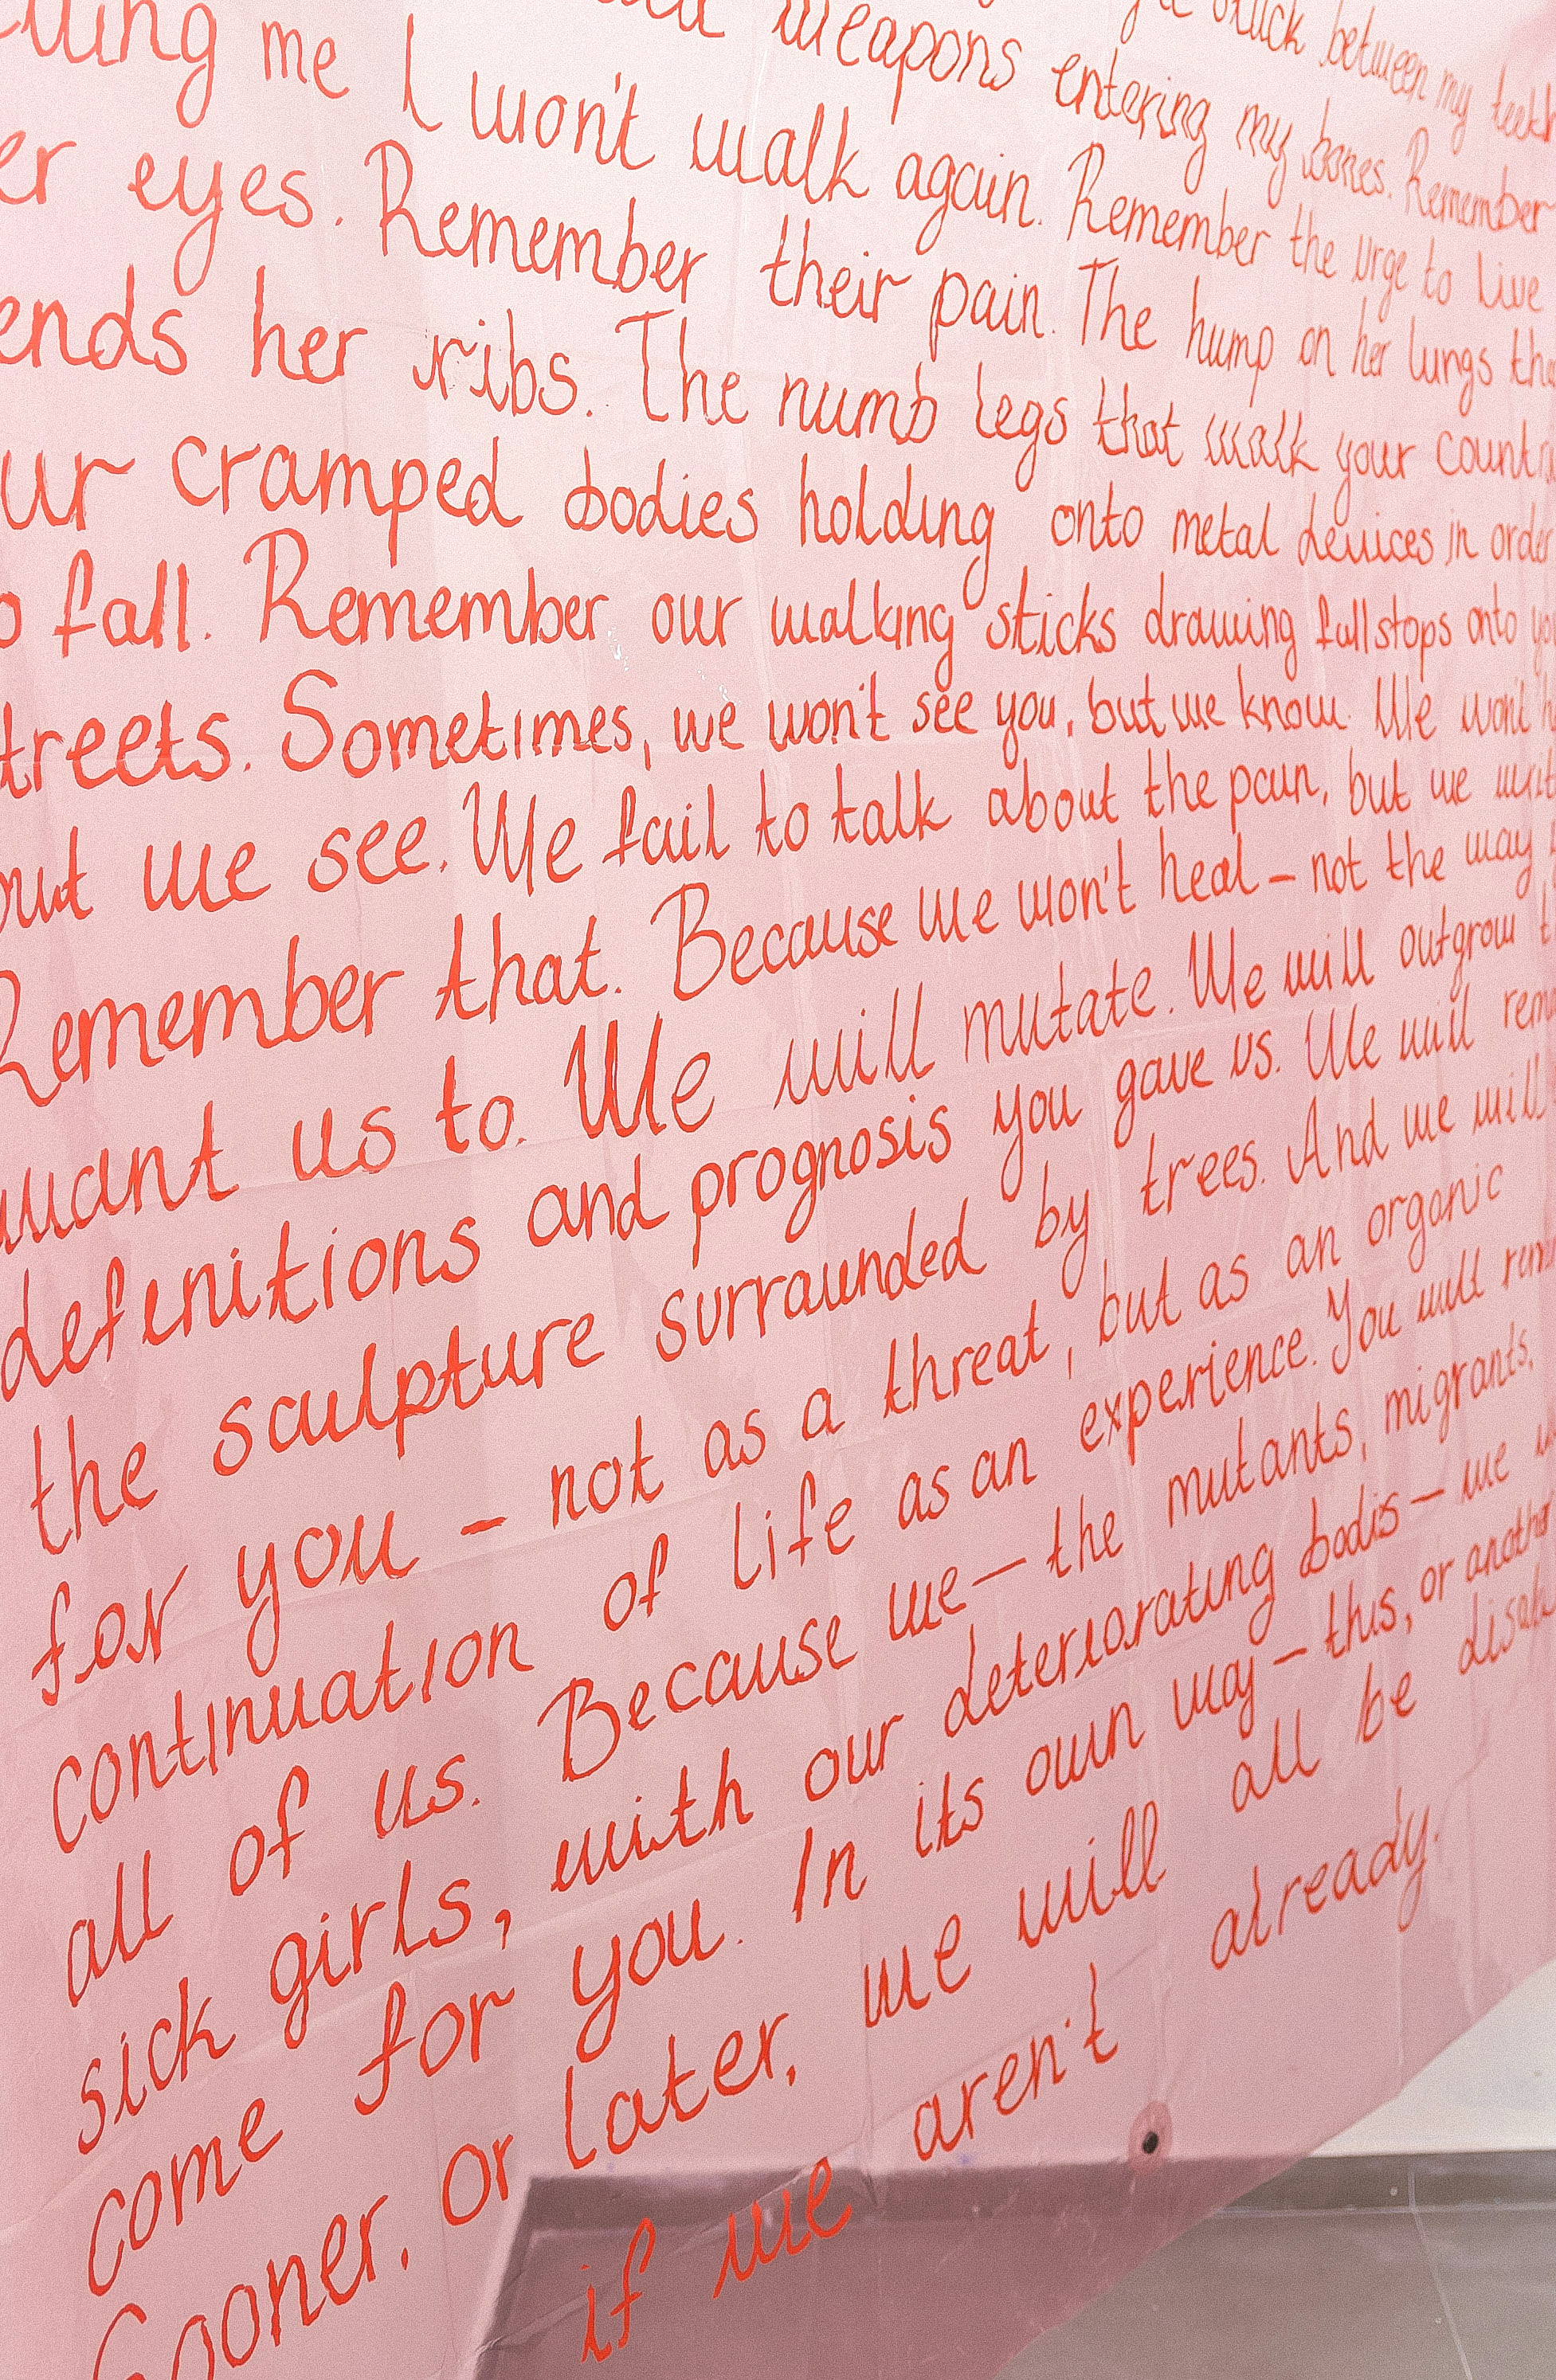 stuck between my teeth
weapons entering my bones. Remember
lling me I won't walk again. Remember the urge to live
er eyes. Remember their pain. The hump on her lungs tha
ends her ribs. The numb legs that walk your countri
ur cramped bodies holding onto metal devices in order
o fall. Remember our walking sticks drawing fullstops onto yo
treets. Sometimes, we won't see you, but we know. We won't h
out we see. We fail to talk about the pain, but we writ
Remember that. Because we won't heal – not the way
want us to. We will mutate. We will outgrow t
defenitions and prognosis you gave us. We will rema
the sculpture surrounded by trees. And we will
for you – not as a threat, but as an organic
continuation of life as an experience. You will rem
all of us. Because we – the mutants, migrants,
sick girls, with our deteriorating bodis – we w
come for you. In its own way – this, or another
Sooner, or later, we will all be disab
if we aren't already.